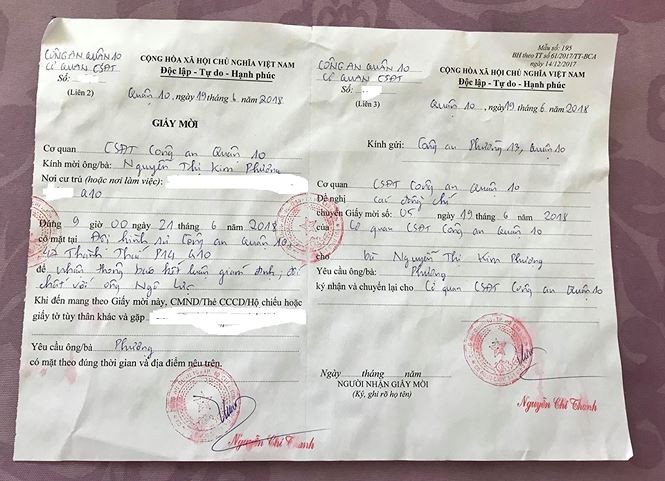 CÔNG AN QUẬN 10
CƠ QUAN CSĐT
Số:
(Liên 2)
CỘNG HÒA XÃ HỘI CHỦ NGHĨA VIỆT NAM
Độc lập - Tự do - Hạnh phúc
Quận 10, ngày 19 tháng 6 năm 2018
GIẤY MỜI
Cơ quan CSĐT Công an Quận 10
Kính mời ông/bà: Nguyễn Thị Kim Phượng
Nơi cư trú (hoặc nơi làm việc):
Q10
Đúng 9 giờ 00 ngày 21 tháng 6 năm 2018
có mặt tại Đội hình sự Công an Quận 10,
47 Thành Thái P14 Q10
để nhận thông báo kết luận giám định; đối
chất với ông Ngô
Khi đến mang theo Giấy mời này, CMND/Thẻ CCCD/Hộ chiếu hoặc
giấy tờ tùy thân khác và gặp
Yêu cầu ông/bà Phượng
có mặt theo đúng thời gian và địa điểm nêu trên.
Nguyễn Chí Thanh
Mẫu số: 195
BH theo TT số 61/2017/TT-BCA
ngày 14/12/2017
CÔNG AN QUẬN 10
CƠ QUAN CSĐT
Số:
(Liên 3)
CỘNG HÒA XÃ HỘI CHỦ NGHĨA VIỆT NAM
Độc lập - Tự do - Hạnh phúc
Quận 10, ngày 19 tháng 6 năm 2018
Kính gửi: Công an Phường 13, Quận 10
Cơ quan CSĐT Công an Quận 10
Đề nghị các đồng chí
chuyển Giấy mời số: 05 ngày 19 tháng 6 năm 2018
của Cơ quan CSĐT Công an Quận 10
cho bà Nguyễn Thị Kim Phượng
Yêu cầu ông/bà Phượng
ký nhận và chuyển lại cho Cơ quan CSĐT Công an Quận 10
Ngày tháng năm
NGƯỜI NHẬN GIẤY MỜI
(Ký, ghi rõ họ tên)
Nguyễn Chí Thanh